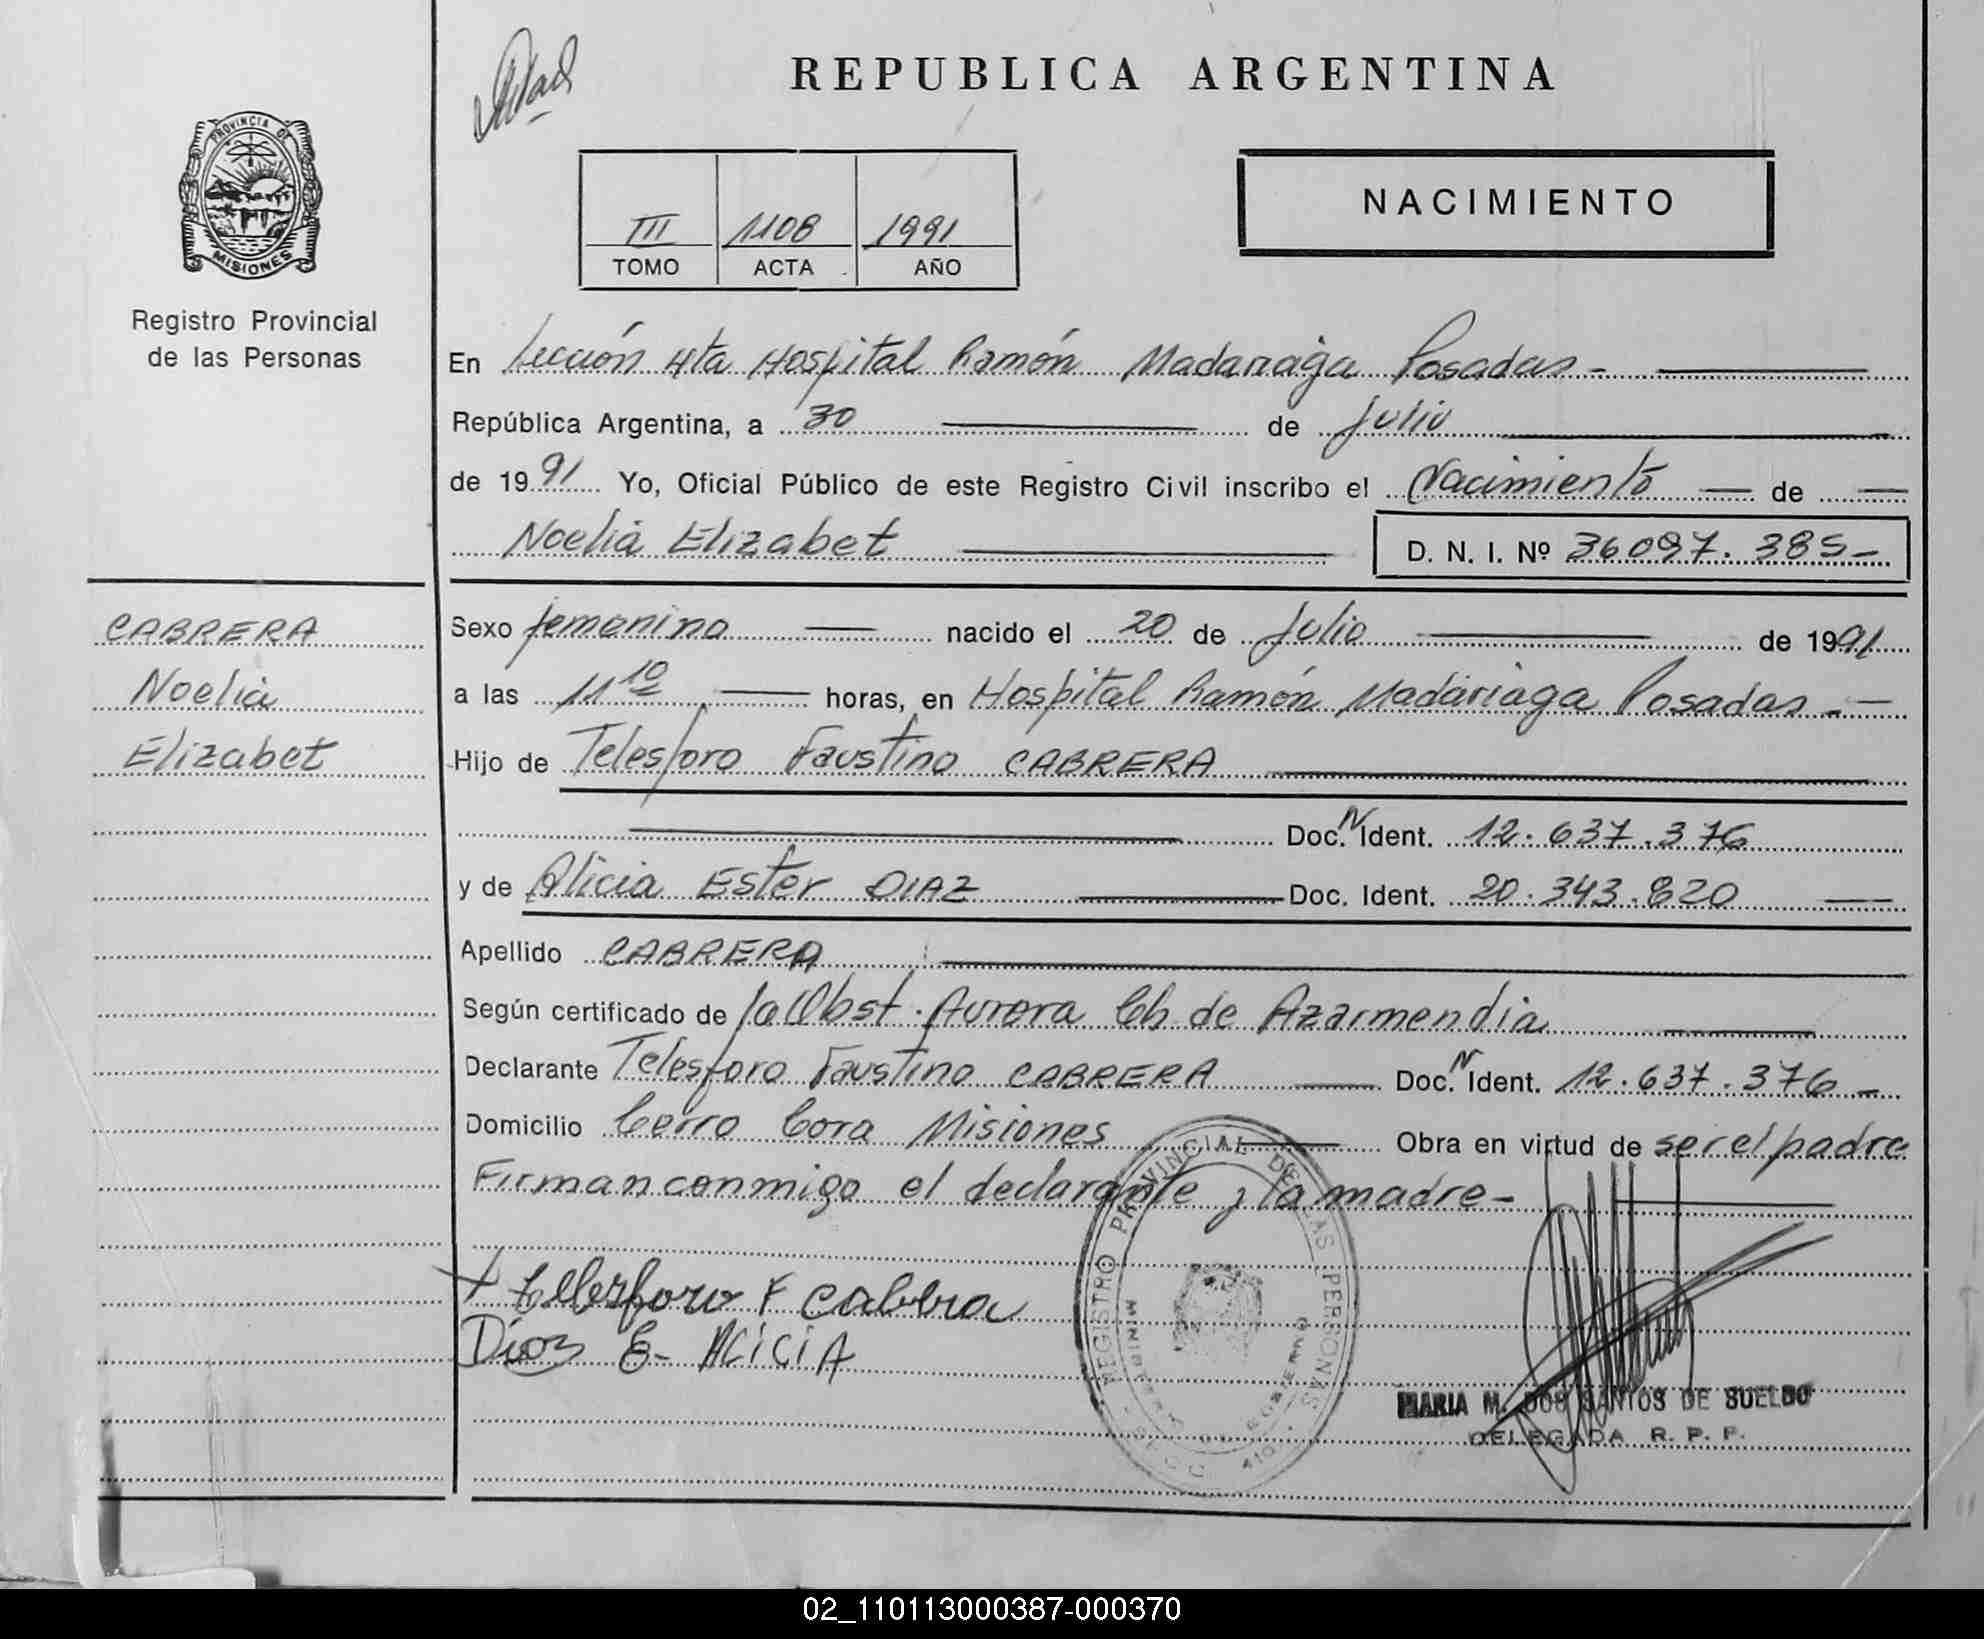 REPUBLICA ARGENTINA
PROVINCIA DE
MISIONES
Registro Provincial
de las Personas
III 1108 1991
TOMO ACTA AÑO
NACIMIENTO
En Sección 4ta Hospital Ramón Madariaga Posadas -
República Argentina, a 30 de Julio
de 1991 Yo, Oficial Público de este Registro Civil inscribo el Nacimiento de
Noelia Elizabet D. N. I. Nº 36097.385-
CABRERA
Noelia
Elizabet
Sexo femenino nacido el 20 de Julio de 1991
a las 11 10 horas, en Hospital Ramón Madariaga Posadas.-
Hijo de Telesforo Faustino CABRERA
Doc. N Ident. 12.637.376
y de Alicia Ester DIAZ Doc. Ident. 20.343.820
Apellido CABRERA
Según certificado de la Obst. Aurora Ch de Azarmendia
Declarante Telesforo Faustino CABRERA Doc. N Ident. 12.637.376-
Domicilio Cerro Cora Misiones Obra en virtud de ser el padre
Firman conmigo el declarante y la madre-
REGISTRO PROVINCIAL DE LAS PERSONAS
MINISTERIO DE GOBIERNO
+ telesforo F cabrera
Diaz E- AliciA
MARIA M. DOS SANTOS DE SUELDO
DELEGADA R. P. P.
02_110113000387-000370